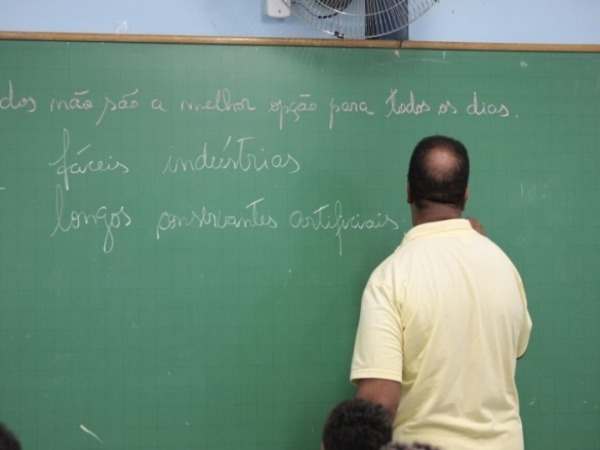 dos não são a melhor opção para todos os dias.
fáceis indústrias
longos conservantes artificiais